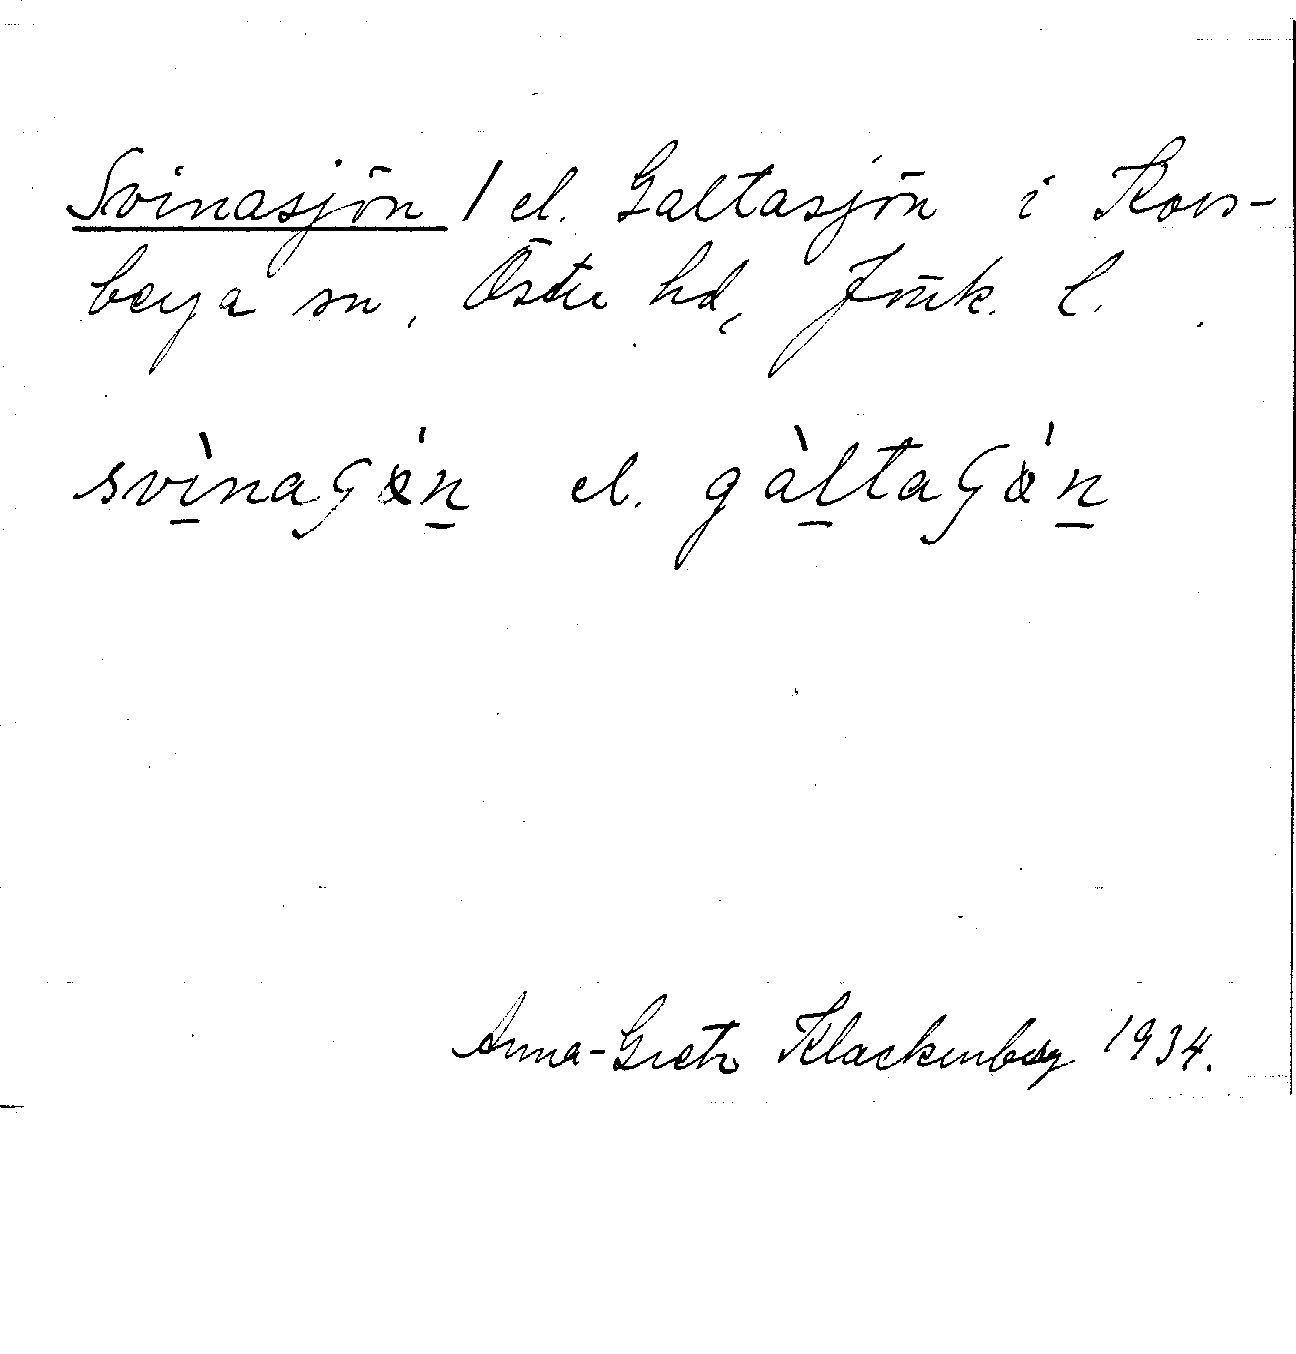 Svinasjön / el. Galtasjön i Kors-
berga sn, Östra hd, Jönk. l.
svìnaɢǿn el. gàltaɢǿn
Anna-Greta Klackenberg 1934.